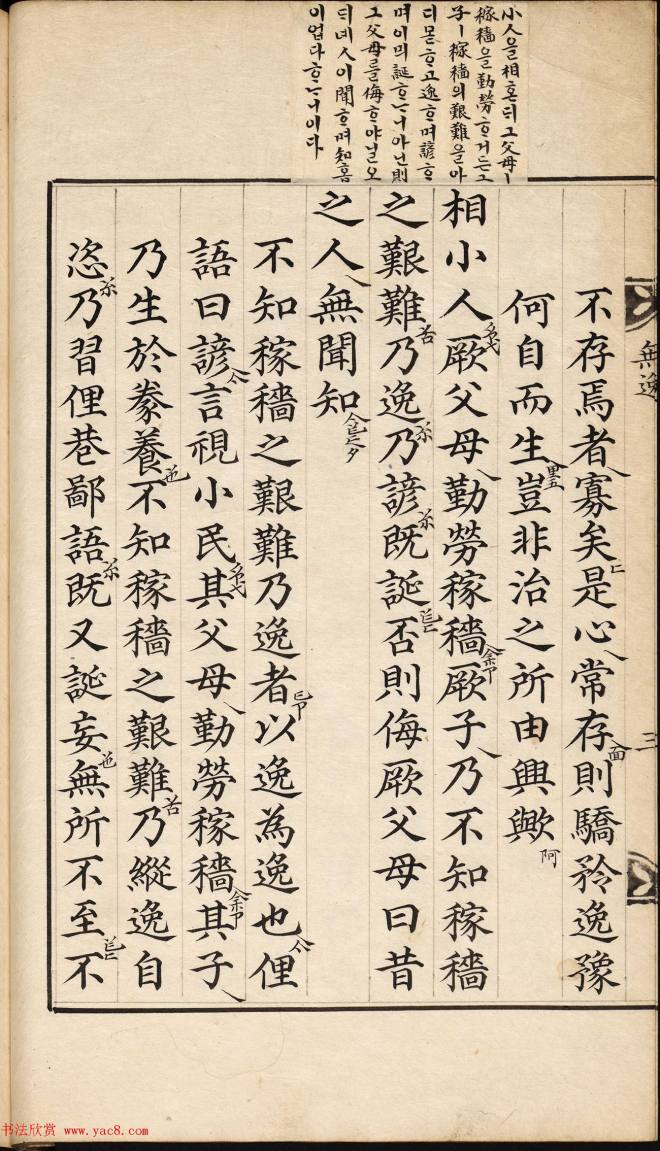 小人을相혼디그父母ㅣ
稼穡을勤勞ᄒᆞ거든그
子ㅣ稼穡의艱難을아
디몯ᄒᆞ고逸ᄒᆞ며諺ᄒᆞ
며이믜誕ᄒᆞᄂᆞ니아닌則
그父母를侮ᄒᆞ야닐오
디녜人이聞ᄒᆞ며知홈
이업다ᄒᆞᄂᆞ니이다
無逸
三
不存焉者寡矣是心常存則驕矜逸豫
何自而生豈非治之所由興歟
相小人厥父母勤勞稼穡厥子乃不知稼穡
之艱難乃逸乃諺既誕否則侮厥父母曰昔
之人無聞知
不知稼穡之艱難乃逸者以逸為逸也俚
語曰諺言視小民其父母勤勞稼穡其子
乃生於豢養不知稼穡之艱難乃縱逸自
恣乃習俚巷鄙語既又誕妄無所不至不
书法欣赏 www.yac8.com